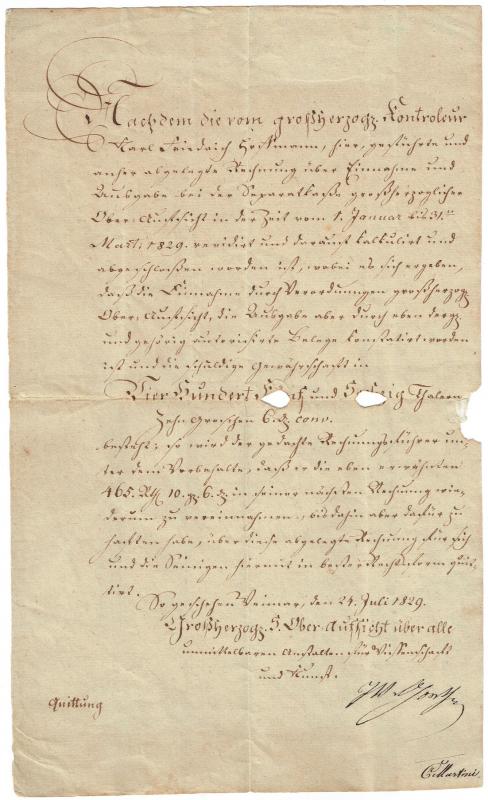 Nachdem die vom großherzogl. Kontroleur
Karl Friedrich Hoffmann, hier, geführte und
anher abgelegte Rechnung über Einnahme und
Ausgabe bei der Separatkasse großherzoglicher
Ober-Aufsicht in der Zeit vom 1. Januar bis 31ten
März 1829. revidirt und darauf kalkulirt und
abgeschloßen worden ist, wobei es sich ergeben,
daß die Einnahme durch Verordnungen großherzogl.
Ober-Aufsicht, die Ausgabe aber durch eben dergl.
und gehörig autorisirte Belege konstatirt worden
ist und die schuldige Gewährschaft in
Vier Hundert Fünf und Sechzig Thalern
Zehn Groschen 6. d. conv.
besteht; so wird der gedachte Rechnungsführer un-
ter dem Vorbehalte, daß er die eben erwähnten
465. Rth. 10. gr. 6. d. in seiner nächsten Rechnung wie-
derum zu vereinnahmen, bis dahin aber dafür zu
haften habe, über diese abgelegte Rechnung für sich
und die Seinigen hiermit in bester Rechtsform quit-
tirt.
So geschehen Weimar, den 24. Juli 1829.
Großherzogl. S. Ober Aufsicht über alle
unmittelbaren Anstalten für Wissenschaft
und Kunst.
JWvGoethe
Quittung